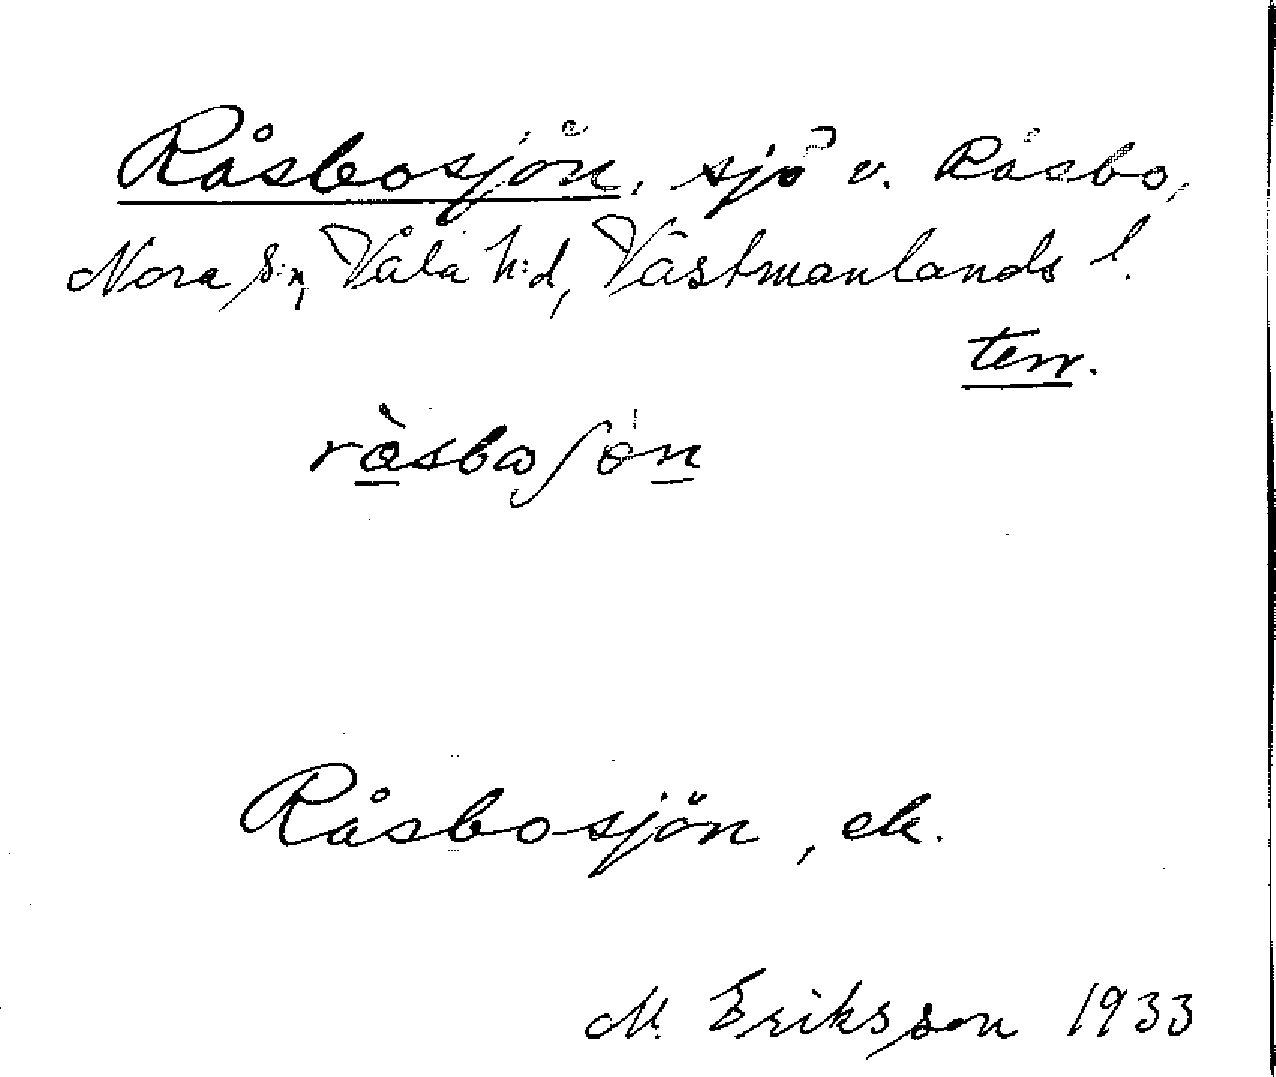 Råsbosjön, sjö v. Råsbo,
Nora s:n, Våla h:d, Västmanlands l.
terr.
ràsbωʃön
Råsbosjön, ek.
M. Eriksson 1933